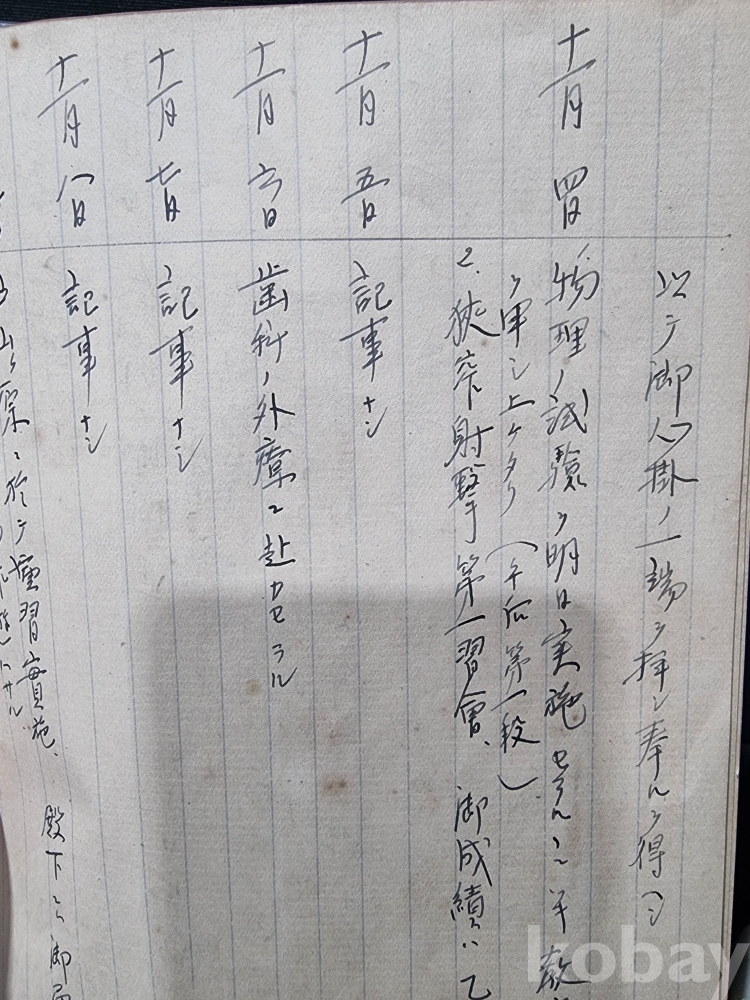 以テ御心掛ノ一端ヲ拝シ奉ルヲ得ヘシ
十一月 四日 物理ノ試驗ヲ明日実施セラルヽニ
ヲ申シ上ケタリ(午后第一段)
2. 狭窄射撃第一習會、御成績ハ乙
十一月 五日 記事ナシ
十一月 六日 歯科ノ外療ニ赴カセラル
十一月 七日 記事ナシ
十一月 八日 記事ナシ
ニ於テ演習實施、殿下ニハ御
kobay